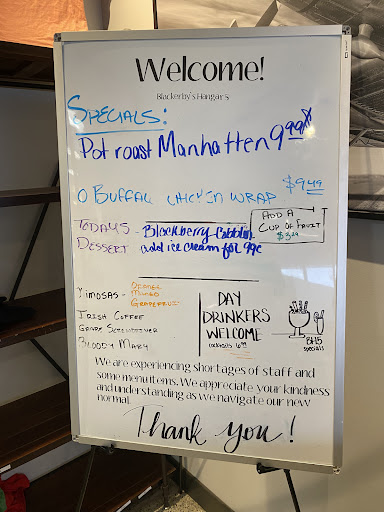 Welcome!
Blackerby's Hangar 5
SPECIALS:
Pot roast Manhatten 9.99
O BUFFALO CHICKEN WRAP $9.49
ADD A
CUP OF FRUIT
TODAYS - Blackberry Cobbler
DESSERT add ice cream for 99¢
MIMOSAS - ORANGE
MANGO
GRAPEFRUIT
IRISH COFFEE
GRAPE SCREWDRIVER
BLOODY MARY
DAY
DRINKERS
WELCOME
cocktails
BH5
specials
We are experiencing shortages of staff and
some menu items. We appreciate your kindness
and understanding as we navigate our new
normal.
Thank you!